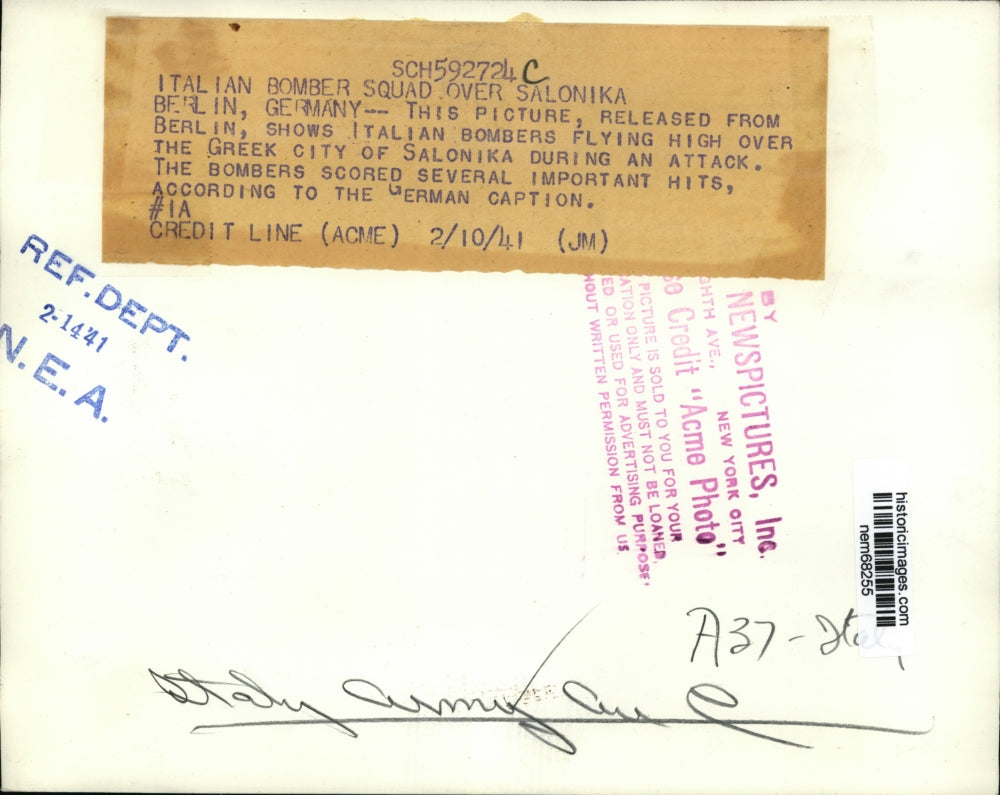 SCH592724 C
ITALIAN BOMBER SQUAD OVER SALONIKA
BERLIN, GERMANY-- THIS PICTURE, RELEASED FROM
BERLIN, SHOWS ITALIAN BOMBERS FLYING HIGH OVER
THE GREEK CITY OF SALONIKA DURING AN ATTACK.
THE BOMBERS SCORED SEVERAL IMPORTANT HITS,
ACCORDING TO THE GERMAN CAPTION.
#1A
CREDIT LINE (ACME) 2/10/41 (JM)
REF. DEPT.
2-14 41
N. E. A.
BY
NEWSPICTURES, Inc.
GHTH AVE., NEW YORK CITY
Credit "Acme Photo"
PICTURE IS SOLD TO YOU FOR YOUR
ATION ONLY AND MUST NOT BE LOANED,
ED OR USED FOR ADVERTISING PURPOSE
HOUT WRITTEN PERMISSION FROM US.
historicimages.com
nem68255
A37 - Ital
Italy Army